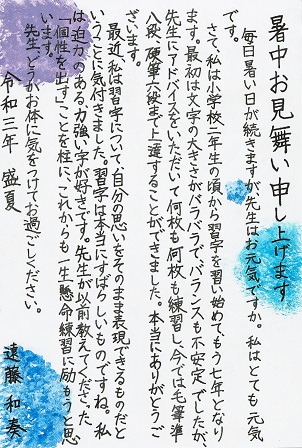 暑中お見舞い申し上げます
毎日暑い日が続きますが先生はお元気ですか。私はとても元気
です。
さて、私は小学校二年生の頃から習字を習い始めてもう七年となり
ます。最初は文字の大きさがバラバラで、バランスも不安定でしたが、
先生にアドバイスをいただいて何枚も何枚も練習し、今では毛筆準
八段、硬筆六段まで上達することができました。本当にありがとうご
ざいます。
最近、私は習字について、自分の思いをそのまま表現できるものだと
いうことに気付きました。習字は本当にすばらしいものですね。私
は迫力のある、力強い字が好きです。先生が以前教えてくださった
「個性を出す」ことを柱に、これからも一生懸命練習に励もうと思
います。
先生、どうかお体に気をつけてお過ごしください。
令和三年 盛夏
遠藤和奏